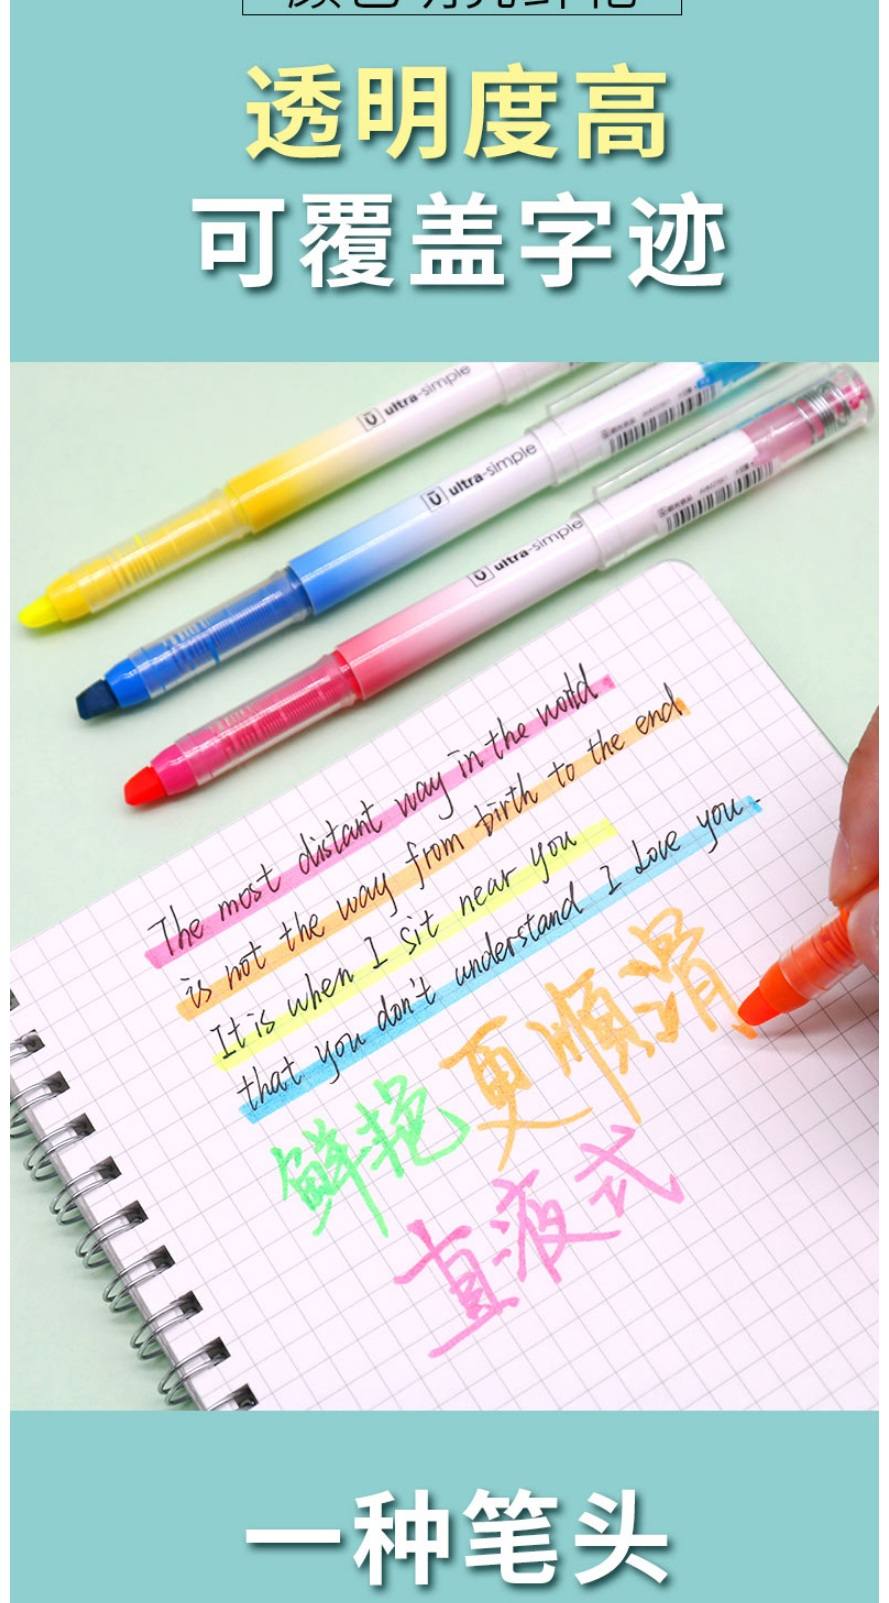 透明度高
可覆盖字迹
ultra-simple
ultra-simple
ultra-simple
The most distant way in the world
is not the way from birth to the end
It is when I sit near you
that you don't understand I Love you.
鲜艳 更顺滑
直液式
一种笔头